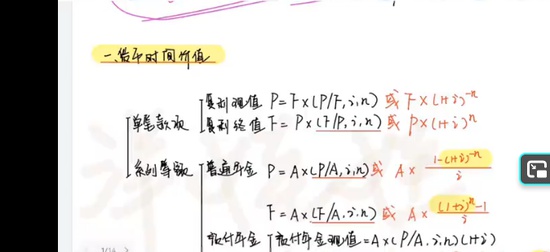 一、货币时间价值
单笔款项 复利现值 P=F×(P/F,i,n) 或 F×(1+i)^-n
复利终值 F=P×(F/P,i,n) 或 P×(1+i)^n
系列等额 普通年金 P=A×(P/A,i,n) 或 A×\frac{1-(1+i)^{-n}}{i}
F=A×(F/A,i,n) 或 A×\frac{(1+i)^n-1}{i}
预付年金 预付年金现值=A×(P/A,i,n)(1+i)